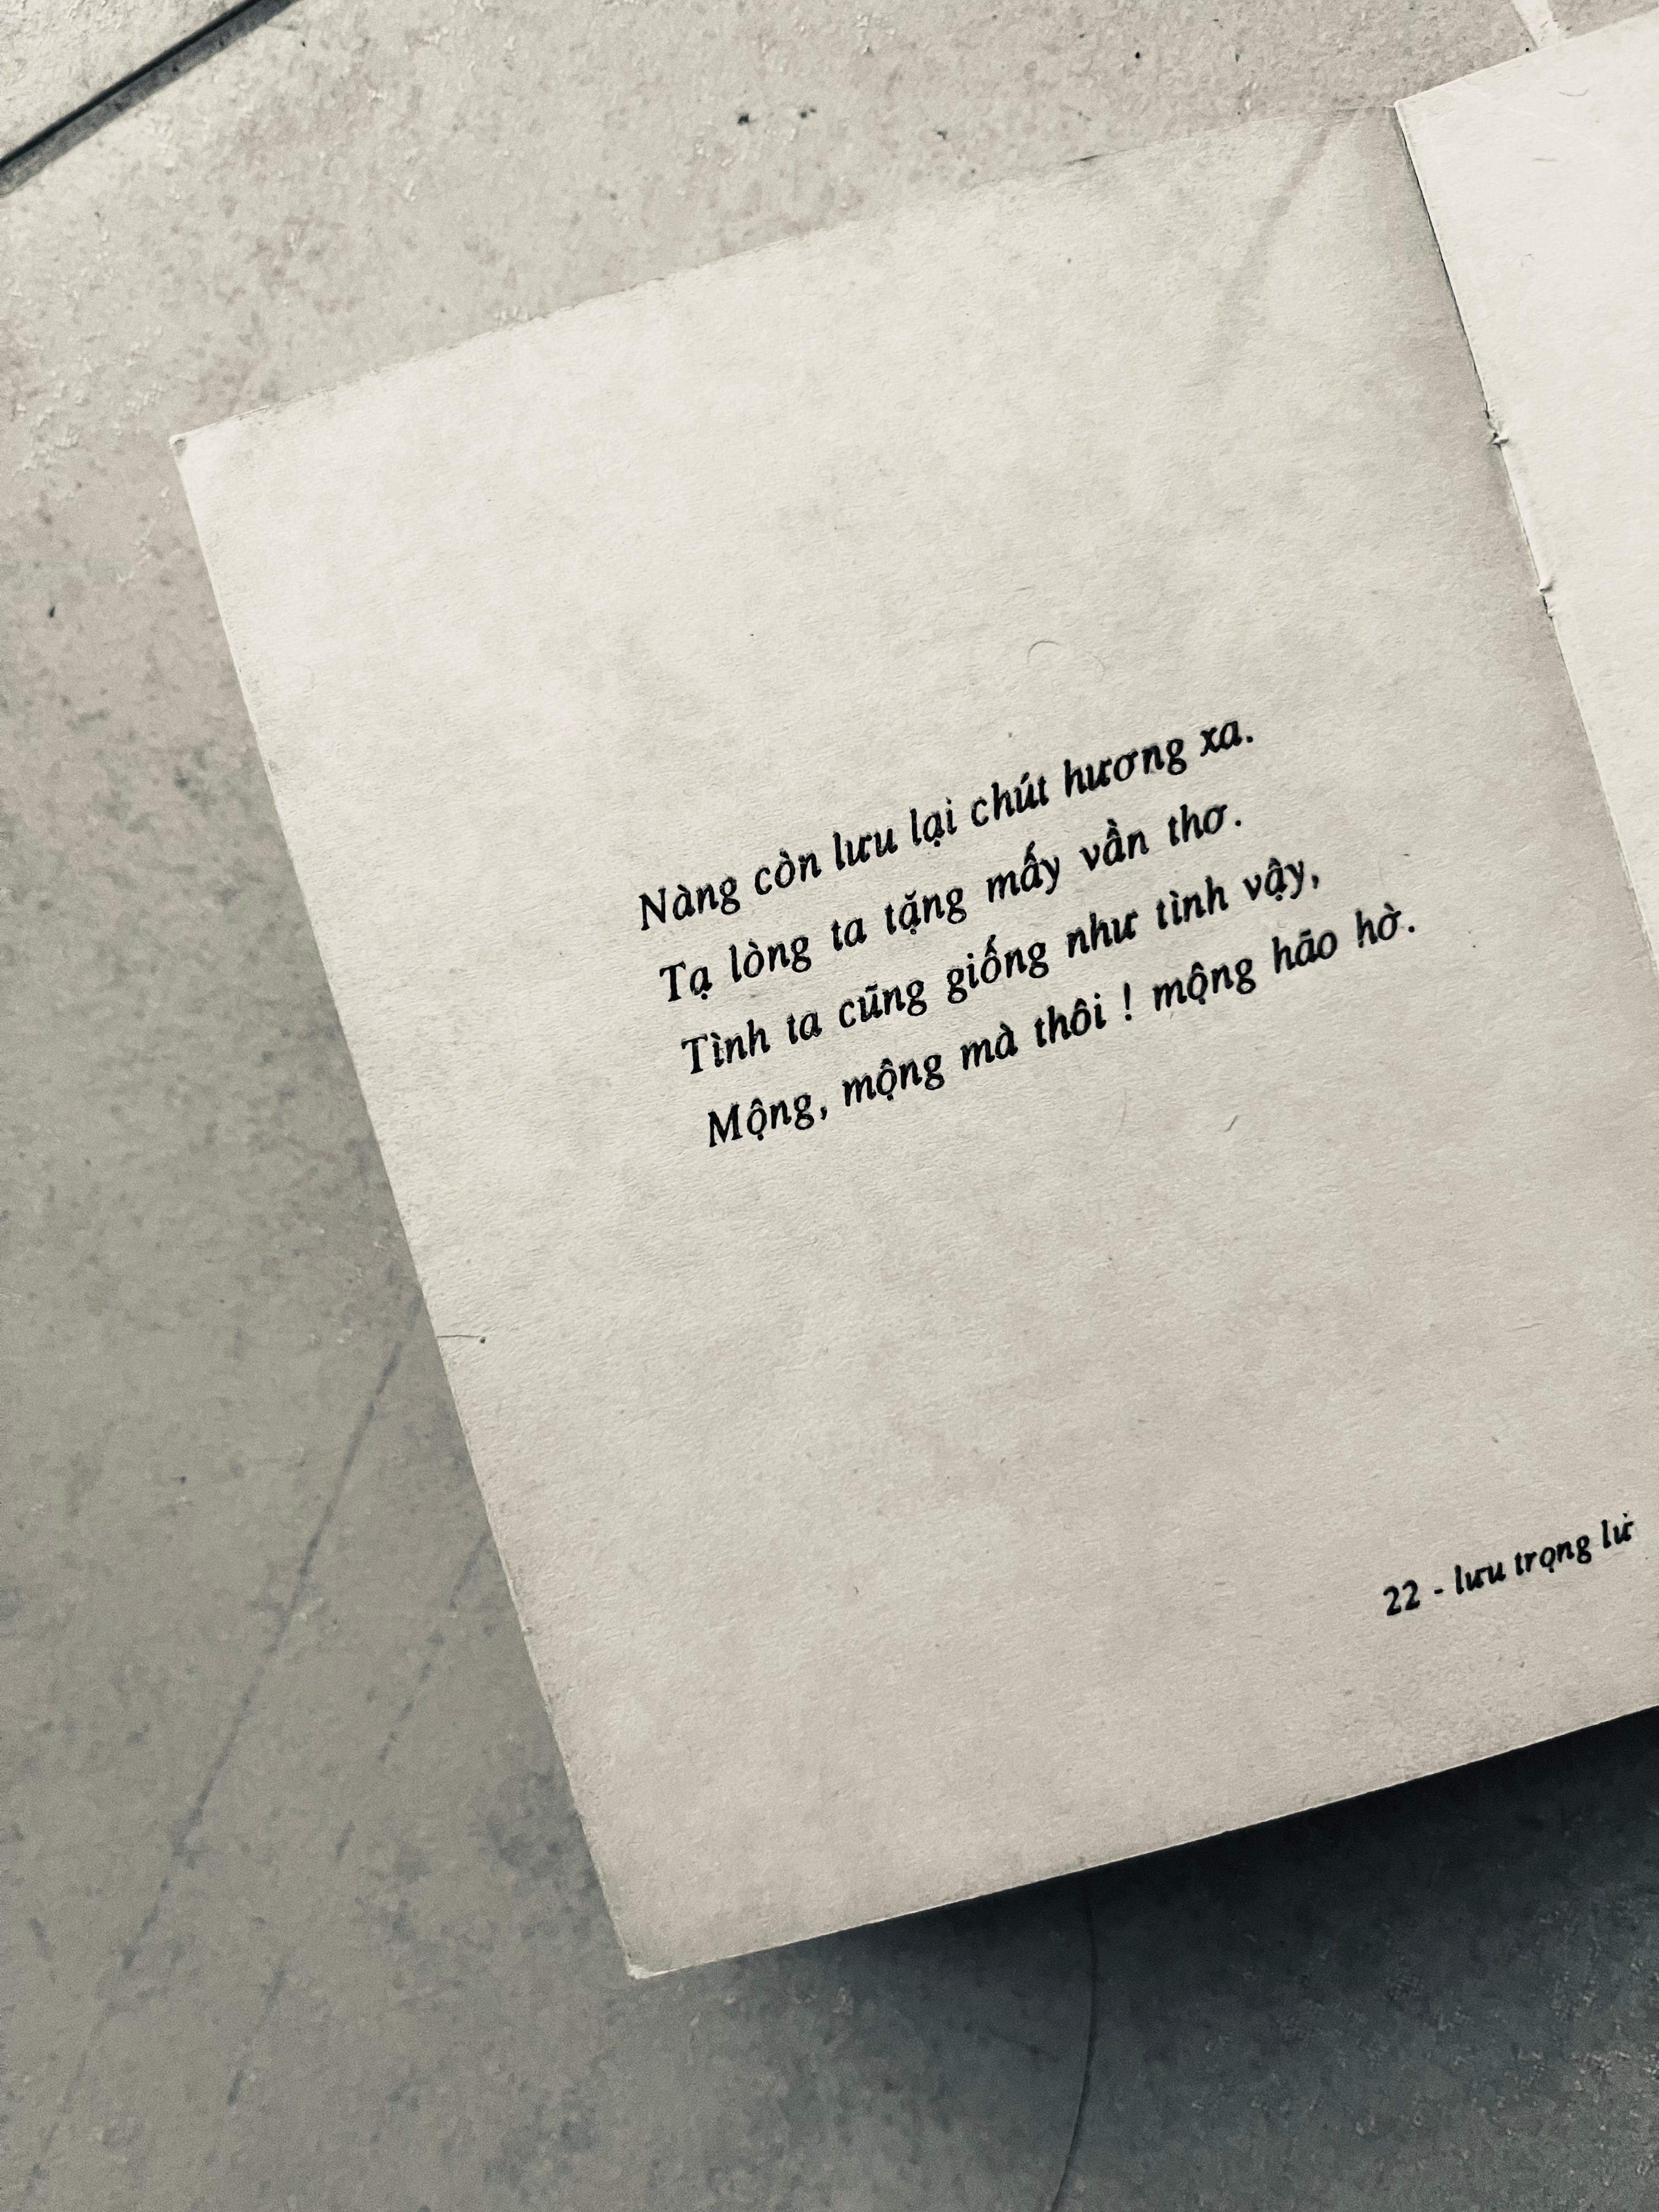 Nàng còn lưu lại chút hương xa.
Tạ lòng ta tặng mấy vần thơ.
Tình ta cũng giống như tình vậy,
Mộng, mộng mà thôi ! mộng hão hờ.
22 - lưu trọng lư